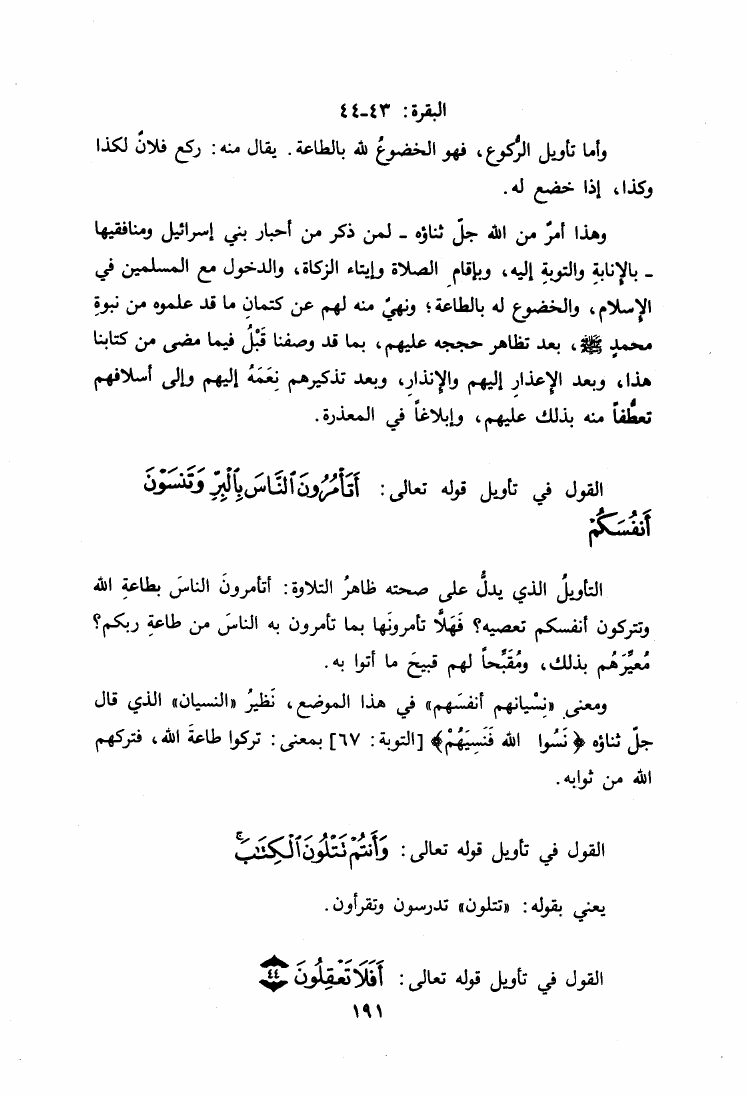 البقرة: ٤٣-٤٤
وأما تأويل الرُّكوع، فهو الخضوعُ لله بالطاعة. يقال منه: ركع فلانٌ لكذا
وكذا، إذا خضع له.
وهذا أمرٌ من الله جلّ ثناؤه - لمن ذكر من أحبار بني إسرائيل ومنافقيها
- بالإنابةِ والتوبةِ إليه، وبإقامِ الصلاة وإيتاء الزكاة، والدخول مع المسلمين في
الإسلام، والخضوع له بالطاعة؛ ونهيٌ منه لهم عن كتمانِ ما قد علموه من نبوةِ
محمدٍ ﷺ، بعد تظاهر حججه عليهم، بما قد وصفنا قَبْلُ فيما مضى من كتابنا
هذا، وبعد الإعذارِ إليهم والإنذارِ، وبعد تذكيرهم نِعَمَهُ إليهم وإلى أسلافهم
تعطُّفاً منه بذلك عليهم، وإبلاغاً في المعذرة.
القول في تأويل قوله تعالى: أَتَأْمُرُونَ ٱلنَّاسَ بِٱلْبِرِّ وَتَنسَوْنَ
أَنفُسَكُمْ
التأويلُ الذي يدلُّ على صحته ظاهرُ التلاوة: أتأمرونَ الناسَ بطاعةِ الله
وتتركون أنفسكم تعصيه؟ فَهَلَّا تأمرونَها بما تأمرون به الناسَ من طاعةِ ربكم؟
مُعيِّرَهُم بذلك، ومُقَبِّحاً لهم قبيحَ ما أتوا به.
ومعنى «نِسْيانهم أنفسَهم» في هذا الموضع، نَظيرُ «النسيان» الذي قال
جلّ ثناؤه ﴿نَسُوا الله فَنَسِيَهُمْ﴾ [التوبة: ٦٧] بمعنى: تركوا طاعةَ الله، فتركهم
الله من ثوابه.
القول في تأويل قوله تعالى: وَأَنتُمْ تَتْلُونَ ٱلْكِتَٰبَ ۚ
يعني بقوله: «تتلون» تدرسون وتقرأون.
القول في تأويل قوله تعالى: أَفَلَا تَعْقِلُونَ ٤٤
١٩١